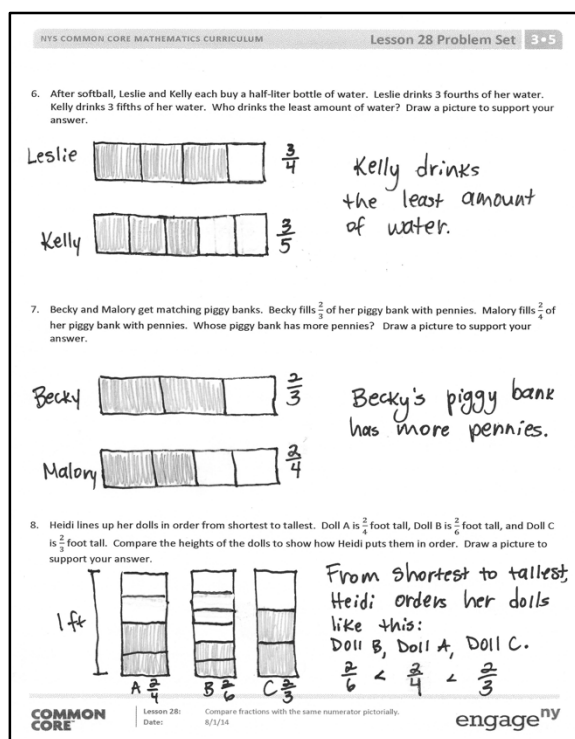 NYS COMMON CORE MATHEMATICS CURRICULUM
Lesson 28 Problem Set 3•5
6. After softball, Leslie and Kelly each buy a half-liter bottle of water. Leslie drinks 3 fourths of her water.
Kelly drinks 3 fifths of her water. Who drinks the least amount of water? Draw a picture to support your
answer.
Leslie 3/4
Kelly 3/5
Kelly drinks
the least amount
of water.
7. Becky and Malory get matching piggy banks. Becky fills 2/3 of her piggy bank with pennies. Malory fills 2/4 of
her piggy bank with pennies. Whose piggy bank has more pennies? Draw a picture to support your
answer.
Becky 2/3
Malory 2/4
Becky's piggy bank
has more pennies.
8. Heidi lines up her dolls in order from shortest to tallest. Doll A is 2/4 foot tall, Doll B is 2/6 foot tall, and Doll C
is 2/3 foot tall. Compare the heights of the dolls to show how Heidi puts them in order. Draw a picture to
support your answer.
1 ft
A 2/4 B 2/6 C 2/3
From shortest to tallest,
Heidi orders her dolls
like this:
Doll B, Doll A, Doll C.
2/6 < 2/4 < 2/3
COMMON
CORE
Lesson 28: Compare fractions with the same numerator pictorially.
Date: 8/1/14
engage ny